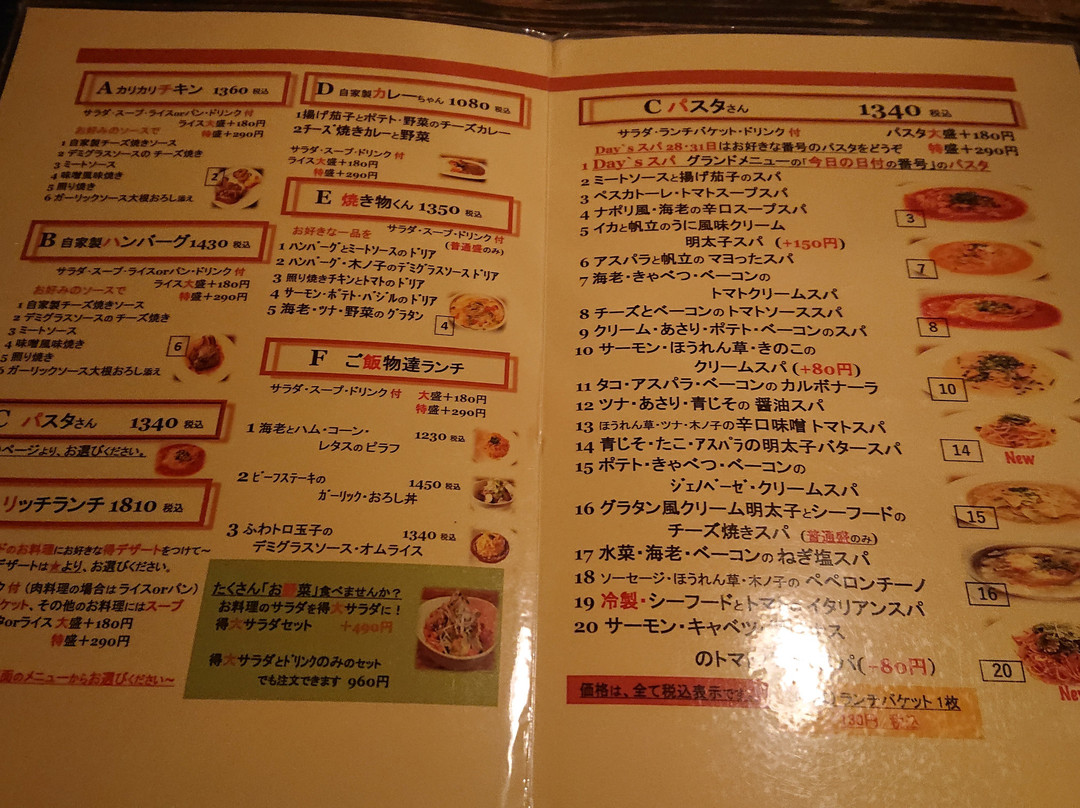 A カリカリチキン 1360 税込
サラダ・スープ・ライスorパン・ドリンク 付
ライス大盛+180円
特盛+290円
お好みのソースで
1 自家製チーズ焼きソース
2 デミグラスソースの チーズ焼き
3 ミートソース
4 味噌風味焼き
5 照り焼き
6 ガーリックソース大根おろし添え
2
B 自家製ハンバーグ1430 税込
サラダ・スープ・ライスorパン・ドリンク 付
ライス大盛+180円
特盛+290円
お好みのソースで
1 自家製チーズ焼きソース
2 デミグラスソースの チーズ焼き
3 ミートソース
4 味噌風味焼き
5 照り焼き
6 ガーリックソース大根おろし添え
6
C パスタさん 1340 税込
ページより、お選びください。
リッチランチ 1810 税込
のお料理にお好きな得デザートをつけて~
デザートは★より、お選びください。
付 (肉料理の場合はライスorパン)
ケット、その他のお料理にはスープ
orライス 大盛+180円
特盛+290円
面のメニューからお選びください~
D 自家製カレーちゃん 1080 税込
1揚げ茄子とポテト・野菜のチーズカレー
2チーズ焼きカレーと野菜
サラダ・スープ・ドリンク 付
ライス大盛+180円
特盛+290円
E 焼き物くん 1350 税込
サラダ・スープ・ドリンク 付
お好きな一品を (普通盛のみ)
1 ハンバーグとミートソースのドリア
2 ハンバーグ・木ノ子のデミグラスソースドリア
3 照り焼きチキンとトマトのドリア
4 サーモン・ポテト・バジルのドリア
5 海老・ツナ・野菜のグラタン
4
F ご飯物達ランチ
サラダ・スープ・ドリンク 付 大盛+180円
特盛+290円
1 海老とハム・コーン・
レタスのピラフ 1230 税込
2 ビーフステーキの 1450 税込
ガーリック・おろし丼
3 ふわトロ玉子の 1340 税込
デミグラスソース・オムライス
たくさん「お野菜」食べませんか?
お料理のサラダを得大サラダに!
得大サラダセット +490円
得大サラダとドリンクのみのセット
でも注文できます 960円
C パスタさん 1340 税込
サラダ・ランチバケット・ドリンク 付 パスタ大盛+180円
Day`sスパ 28・31日はお好きな番号のパスタをどうぞ 特盛+290円
1 Day`s スパ グランドメニューの「今日の日付の番号」のパスタ
2 ミートソースと揚げ茄子のスパ
3 ペスカトーレ・トマトスープスパ
4 ナポリ風・海老の辛口スープスパ
5 イカと帆立のうに風味クリーム
明太子スパ (+150円)
6 アスパラと帆立の マヨったスパ
7 海老・きゃべつ・ベーコンの
トマトクリームスパ
8 チーズとベーコンのトマトソーススパ
9 クリーム・あさり・ポテト・ベーコンのスパ
10 サーモン・ほうれん草・きのこの
クリームスパ (+80円)
11 タコ・アスパラ・ベーコンの カルボナーラ
12 ツナ・あさり・青じその 醤油スパ
13 ほうれん草・ツナ・木ノ子の辛口味噌 トマトスパ
14 青じそ・たこ・アスパラの明太子バタースパ
15 ポテト・きゃべつ・ベーコンの
ジェノベーゼ・クリームスパ
16 グラタン風クリーム明太子とシーフードの
チーズ焼きスパ (普通盛のみ)
17 水菜・海老・ベーコンのねぎ塩スパ
18 ソーセージ・ほうれん草・木ノ子の ペペロンチーノ
19 冷製・シーフードとトマト イタリアンスパ
20 サーモン・キャベツ
のトマ
3
7
8
10
14
New
15
16
20
New
価格は、全て税込表示です
ランチバケット 1枚